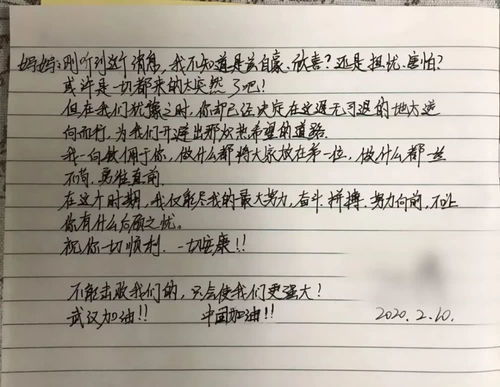 妈妈：刚听到这个消息，我不知道是该自豪、欣喜？还是担忧、害怕？
或许是一切都来的太突然了吧！
但在我们犹豫之时，你却已经决定在这退无可退的地方逆
向而行，为我们开辟出那炽热希望的道路。
我一向钦佩于你，做什么都将大家放在第一位，做什么都一丝
不苟，勇往直前。
在这个时期，我仅能尽我的最大努力，奋斗、拼搏、努力向前，不让
你有什么后顾之忧。
祝你一切顺利，一切安康！！
不能击败我们的，只会使我们更强大！
武汉加油！！ 中国加油！！ 2020.2.10.